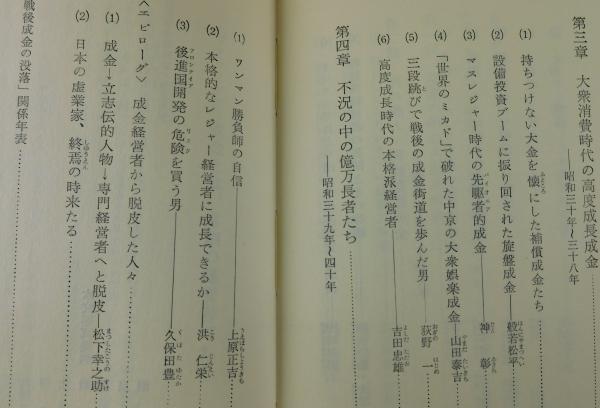 第三章 大衆消費時代の高度成長成金
――昭和三十年~三十八年
(1) 持ちつけない大金を懐にした補償成金たち
(2) 設備投資ブームに振り回された旋盤成金――般若松平
(3) マスレジャー時代の先駆者的成金――神 彰
(4) 「世界のミカド」で破れた中京の大衆娯楽成金――山田泰吉
(5) 三段跳びで戦後の成金街道を歩んだ男――荻野 一
(6) 高度成長時代の本格派経営者――吉田忠雄
第四章 不況の中の億万長者たち
――昭和三十九年~四十年
(1) ワンマン勝負師の自信――上原正吉
(2) 本格的なレジャー経営者に成長できるか――洪 仁栄
(3) 後進国開発の危険を買う男――久保田豊
〈エピローグ〉 成金経営者から脱皮した人々
(1) 成金→立志伝的人物→専門経営者へと脱皮――松下幸之助
(2) 日本の虚業家、終焉の時来たる
戦後成金の没落」関係年表